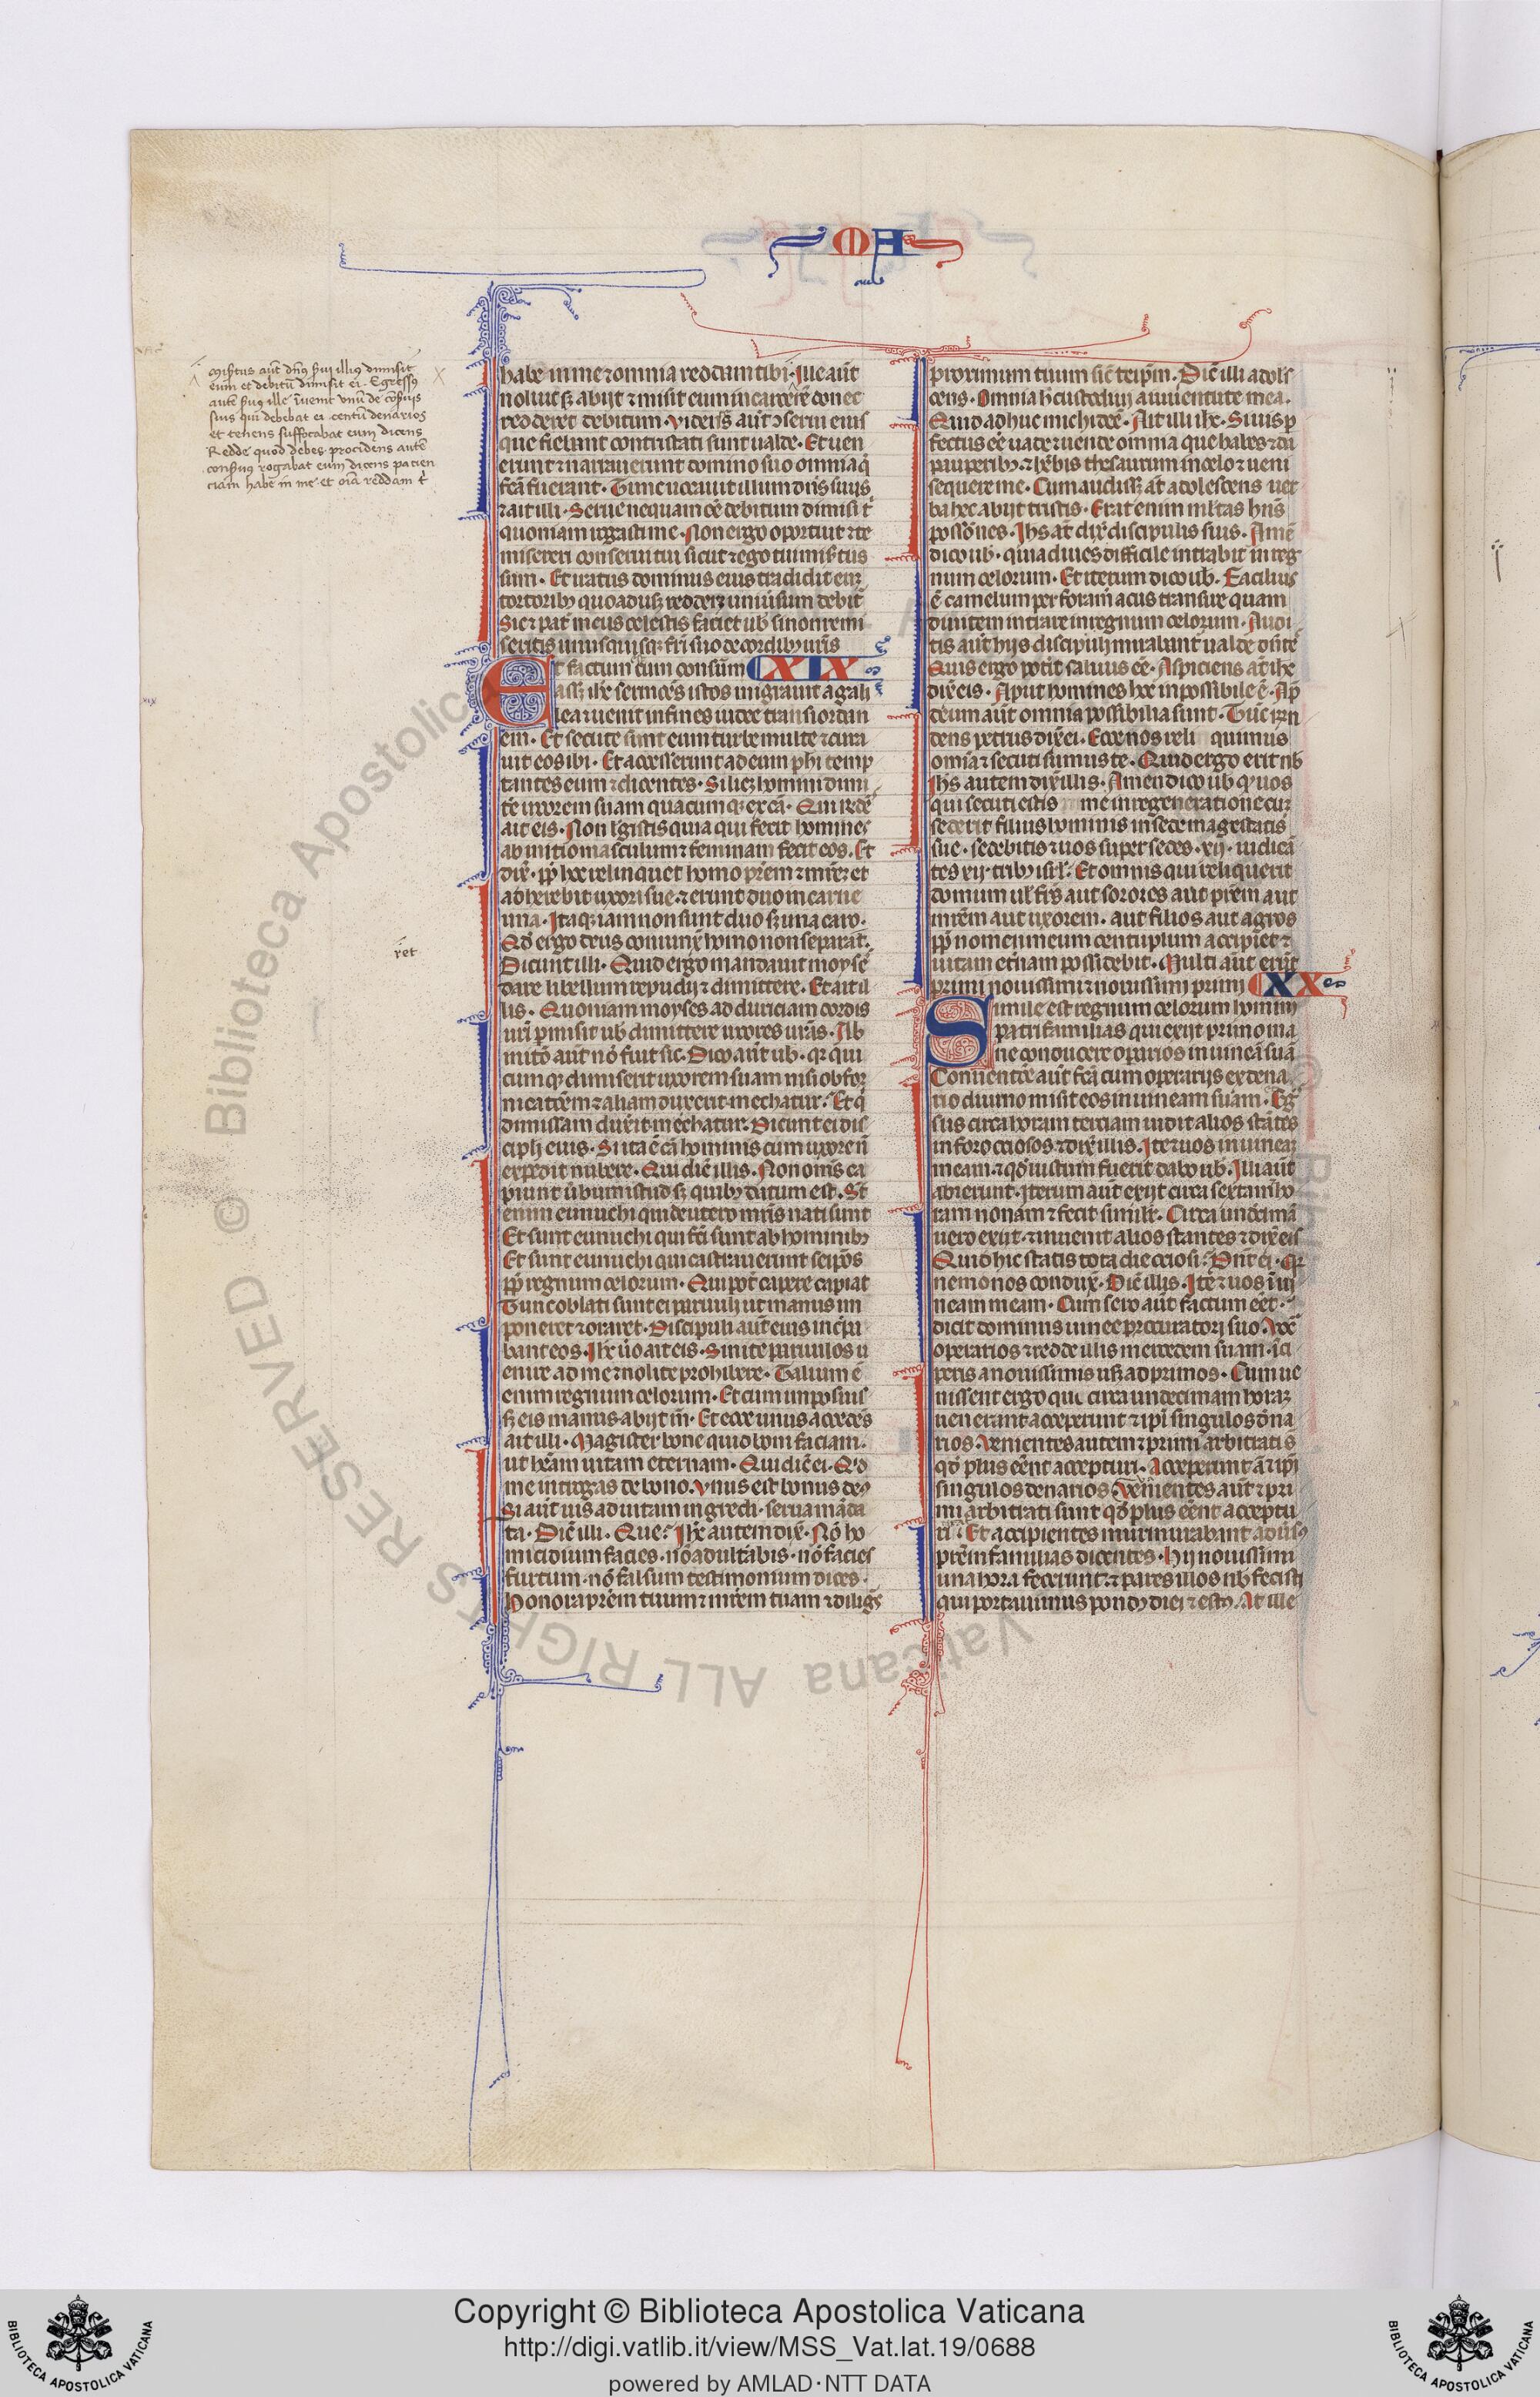 MA
misertus aūt dn̄s ẜui illiꝰ dimisit
eum et debitū dimisit ei. Egressꝰ
autē ẜuꝰ ille īuenit vnū de cōẜuis
suis qui debebat ei centū denarios
et tenens suffocabat eum dicens
Redde quod debes. procidens autē
conẜuꝰ rogabat eum dicens patien
ciam habe in me et oīa reddam t̄
habe in me ⁊ omnia reddam tibi. Ille aūt
noluit sꝫ abijt ⁊ misit eum in carcerē donec
redderet debitum. Videntes aūt ɔserui eius
que fiebant contristati sunt ualde. Et uen
erunt ⁊ narrauerunt domino suo omnia q̄
fc̄a fuerant. Tunc uocauit illum dn̄s suus
⁊ ait illi. Serue nequam oē debitum dimisi t̄
quoniam rogasti me. Non ergo oportuit ⁊ te
misereri conserui tui sicut ⁊ ego tui misertus
sum. Et iratus dominus eius tradidit eum
tortoribꝫ quoadusqꝫ redderet uniūsum debitū
Sic ⁊ pat̄ meus celestis faciet uob̄ si non remi
seritis unusquisqꝫ fr̄i suo de cordibꝫ ur̄is
Et factum cum consum XIX
asset ih̄c sermones istos migrauit a gali
lea ⁊ uenit in fines iudee trans iordan
em. Et secute sunt eum turbe multe ⁊ cura
uit eos ibi. Et accesserunt ad eum phi temp
tantes eum ⁊ dicentes. Si licet homini dimi
te uxorem suam quacumqꝫ ex cā. Qui r̄ndē
ait eis. Non legistis quia qui fecit homines
ab initio masculum ⁊ feminam fecit eos. Et
dix̄. pp̄ hoc relinquet homo pr̄em ⁊ mr̄em et
adherebit uxori sue. ⁊ erunt duo in carne
una. Itaqꝫ iam non sunt duo sꝫ una caro.
Qd̄ ergo deus coniunx̄ homo non separat.
ret
Dicunt illi. Quid ergo mandauit moysē
dare libellum repudij ⁊ dimittere. Et ait il
lis. Quoniam moyses ad duriciam cordis
ur̄i p̄misit uob̄ dimittere uxores ur̄as. Ab
initō aūt nō fuit sic. Dico aūt uob̄. qꝛ qui
cumqꝫ dimiserit uxorem suam nisi ob for
nicatōem ⁊ aliam duxerit mechatur. Et q̄
dimissam duxerit mechatur. Dicunt ei dis
cipli eius. Si ita ē cā hominis cum uxore n̄
expedit nubere. Qui dix̄ illis. Non omn̄s ca
piunt ūbum istud sꝫ quibꝫ datum est. St̄
enim eunuchi qui de utero mr̄is nati sunt
Et sunt eunuchi qui fc̄i sunt ab hominibꝫ
Et sunt eunuchi qui castrauerunt seip̄os
pp̄ regnum celorum. Qui pot̄ capere capiat
Tunc oblati sunt ei paruuli ut manus im
poneret ⁊ oraret. Discipuli aūt eius increpa
bant eos. Ih̄c ūo ait eis. Sinite paruulos u
enire ad me ⁊ nolite prohibere. Talium ē
enim regnum celorum. Et cum imposuis
sꝫ eis manus abijt in̄. Et ecce unus accedēs
ait illi. Magister bone quid boni faciam.
ut heām uitam eternam. Qui dix̄ ei. Qd̄
me int̄rogas de bono. Vnus est bonus deꝰ
Si aūt uis ad uitam ingredi. serua māda
ta. Dix̄ illi. Que. Ih̄c autem dix̄. Nō ho
micidium facies. nō adultabis. nō facies
furtum. nō falsum testimonium dices.
honora pr̄em tuum ⁊ mr̄em tuam ⁊ diliges
proximum tuum sic̄ teip̄m. Dix̄ illi adols
cens. Omnia h̄ custodiui a iuuentute mea.
Quid adhuc michi deē. Ait illi ih̄c. Si uis p
fectus eē uade ⁊ uende omnia que habes ⁊ da
pauperibꝫ ⁊ hēbis thesaurum in celo ⁊ ueni
sequere me. Cum audisset aūt adolescens uer
ba hec abijt tristis. Erat enim ml̄tas hn̄s
possōnes. Ih̄s aūt dix̄ discipulis suis. Amē
dico uob̄. quia diues difficile intrabit in reg
num celorum. Et iterum dico uob̄. Facilius
ē camelum per foramen acus transire quam
diuitem intrare in regnum celorum. Audi
tis aūt hijs discipuli mirabant̄ ualde dn̄tes
Quis ergo potit saluus eē. Aspiciens aūt ih̄c
dix̄ eis. Aput homines hoc inpossibile ē. Ap̄
deum aūt omnia possibilia sunt. Tūc r̄n
dens petrus dix̄ ei. Ecce nos reli quimus
omīa ⁊ secuti sumus te. Quid ergo erit nob̄
Ih̄s autem dix̄ illis. Amen dico uob̄ qꝫ uos
qui secuti estis me in regeneratione cum
sederit filius hominis in sede magestatis
sue. sedebitis ⁊ uos super sedes. xij. iudicā
tes xij. tribꝫ isrl̄. Et omnis qui reliquerit
domum uel frēs aut sorores aut pr̄em aut
mr̄em aut uxorem. aut filios aut agros
pp̄ nomen meum centuplum accipiet ⁊
uitam et̄nam possidebit. Multi aūt erūt
primi nouissimi ⁊ nouissimi primi XX
Simile est regnum celorum homini
patri familias qui exijt primo ma
ne conducere operarios in uineā suā
Conuentōe aūt fc̄a cum operarijs ex dena
rio diurno misit eos in uineam suam. Eg̅s
sus circa horam terciam uidit alios stātes
in foro ociosos ⁊ dix̄ illis. Ite ⁊ uos in uineā
meam. ⁊ qd̄ iustum fuerit dabo uob̄. Illi aūt
abierunt. Iterum aūt exijt circa sextam ho
ram nonam ⁊ fecit similr̄. Circa undecimā
uero exijt. ⁊ inuenit alios stantes ⁊ dix̄ eis
Quid hic statis tota die ociosi. Dn̄t ei. Qꝛ
nemo nos condux̄. Dix̄ illis. Ite ⁊ uos ī ui
neam meam. Cum sero aūt factum eēt.
dicit dominus uinee procuratori suo. Voca
operarios ⁊ redde illis mercedem suam. īci
pens a nouissimis usqꝫ ad primos. Cum ue
nissent ergo qui circa undecimam horam
uenerant acceperunt ⁊ ip̄i singulos dena
rios. Venientes autem ⁊ primi arbitrati s̄
qd̄ plus eēnt accepturi. Acceperunt aūt ⁊ ip̄i
singulos denarios. Venientes aūt ⁊ pri
mi arbitrati sunt qd̄ plus eēnt acceptu
ri. Et accipientes murmurabant adūsꝰ
pr̄em familias dicentes. Hij nouissimi
una hora fecerunt. ⁊ pares illos nob̄ fecisti
qui portauimus pondꝰ diei ⁊ estꝰ. At ille
Copyright © Biblioteca Apostolica Vaticana
http://digi.vatlib.it/view/MSS_Vat.lat.19/0688
powered by AMLAD·NTT DATA
BIBLIOTECA APOSTOLICA VATICANA
BIBLIOTECA APOSTOLICA VATICANA
© Biblioteca Apostolica Vaticana ALL RIGHTS RESERVED